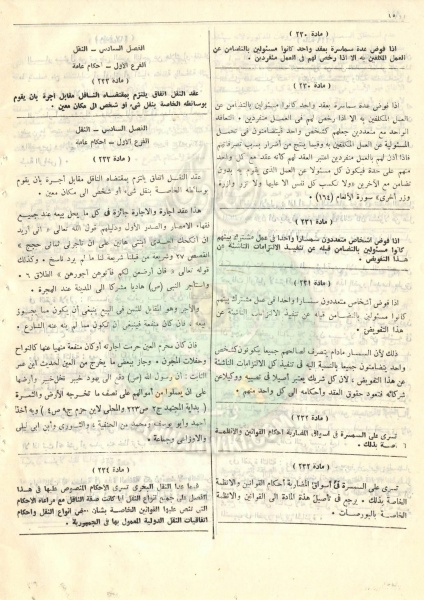 ٤٥
( مادة ٢٣٠ )
اذا فوض عدة سماسرة بعقد واحد كانوا مسئولين بالتضامن عن
العمل المكلفين به الا اذا رخص لهم فى العمل منفردين .
( مادة ٢٣٠ )
اذا فوض عدة سماسرة بعقد واحد كانوا مسئولين بالتضامن عن
العمل المكلفين به الا اذا رخص لهم فى العمل منفردين
الواحد مع متعددين جعلهم كشخص واحد فيتضامنون فى تحمل
المسئولية عن العمل المكلفين به وفيما ينتج من أضرار بسبب تصرفاتهم
فاذا أذن لهم بالعمل منفردين اعتبر العقد لهم كأنه عقد مع كل واحد
منهم على حدة فيكون كل مسئولا عن العمل الذى يقوم به بدون
تضامن مع الآخرين ولا تكسب كل نفس الا عليها ولا تزر وازرة
وزر أخرى » سورة الأنعام (١٦٤)
( مادة ٢٣١ )
اذا فوض أشخاص متعددون سمسارا واحدا فى عمل مشترك بينهم
كانوا مسئولين بالتضامن قبله عن تنفيذ الالتزامات الناشئة عن
هذا التفويض .
( مادة ٢٣١ )
اذا فوض أشخاص متعددون سمسارا واحدا فى عمل مشترك بينهم
كانوا مسئولين بالتضامن قبله عن تنفيذ الالتزامات الناشئة عن
هذا التفويض .
ذلك لأن السمسار مادام يتصرف لصالحهم جميعا يكونون كشخص
واحد يتضامنون جميعا بالنسبة اليه فى تنفيذ كل الالتزامات الناشئة
عن هذا التفويض ، لأن كل شريك يعتبر أصيلا فى نصيبه ووكيلا عن
شركائه فتعود حقوق العقد وأحكامه الى كل واحد منهم .
( مادة ٢٣٢ )
تسرى على السمسرة فى أسواق المضاربة أحكام القوانين والأنظمة
الخاصة بذلك .
( مادة ٢٣٢ )
تسرى على السمسرة فى أسواق المضاربة أحكام القوانين والأنظمة
الخاصة بذلك . يرجع فى تأصيل هذه المادة الى القوانين والأنظمة
الخاصة بالبورصات .
الفصل السادس – النقل
الفرع الأول – أحكام عامة
( مادة ٢٣٣ )
عقد النقل اتفاق يلتزم بمقتضاه الناقل مقابل أجرة بأن يقوم
بوسائطه الخاصة بنقل شىء أو شخص الى مكان معين .
الفصل السادس – النقل
الفرع الأول – أحكام عامة
( مادة ٢٣٣ )
عقد النقل اتفاق يلتزم بمقتضاه الناقل مقابل أجرة بأن يقوم
بوسائطه الخاصة بنقل شىء أو شخص الى مكان معين .
هذا عقد اجارة والاجارة جائزة فى كل ما يحل بيعه عند جميع
فقهاء الأمصار والصدر الأول ودليلهم قول الله تعالى « انى أريد
أن أنكحك احدى ابنتى هاتين على أن تأجرنى ثمانى حجج »
القصص ٢٧ وشرعه من قبلنا شرعة لنا ما لم يرد ناسخ ، وكذلك
قوله تعالى « فان أرضعن لكم فآتوهن أجورهن » الطلاق ٦ .
واستأجر النبى (ص) هاديا مشركا الى المدينة عند الهجرة .
والأجر وهو المقابل للثمن فى البيع ينبغى أن يكون مما يجوز
بيعه ، فان كان منفعة فينبغى أن تكون مما لم ينه عنه الشارع .
فان كان محرم العين حرمت اجارته أو كان منفعة منهيا عنها كالنواح
وحفلات المجون . وجاز ببعض ما يخرج من العين لحديث ابن عمر
الثابت : أن رسول الله (ص) دفع الى يهود خيبر نخل خيبر وأرضها
على أن يعملوا من أموالهم على نصف ما تخرجه الأرض والثمرة
( بداية المجتهد ج٢ ص٢٢٣ والمحلى لابن حزم ج٩ ص٤ ) وبه أخذ
أحمد وأبو يوسف ومحمد من الحنفية ، والثورى وابن أبى ليلى
والأوزاعى وجماعة .
( مادة ٢٣٤ )
فيما عدا النقل البحرى تسرى الأحكام المنصوص عليها فى هذا
الفصل على جميع أنواع النقل أيا كانت صفة الناقل مع مراعاة الأحكام
التى تنص عليها القوانين الخاصة بشأن بعض أنواع النقل وأحكام
اتفاقيات النقل الدولية المعمول بها فى الجمهورية .